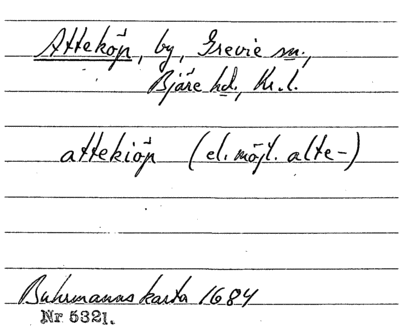 Atteköp, by, Grevie sn.,
Bjäre hd., Kr. l.
attekiöp (el. möjl. alte-)
Buhrmanns karta 1684
Nr 5321.